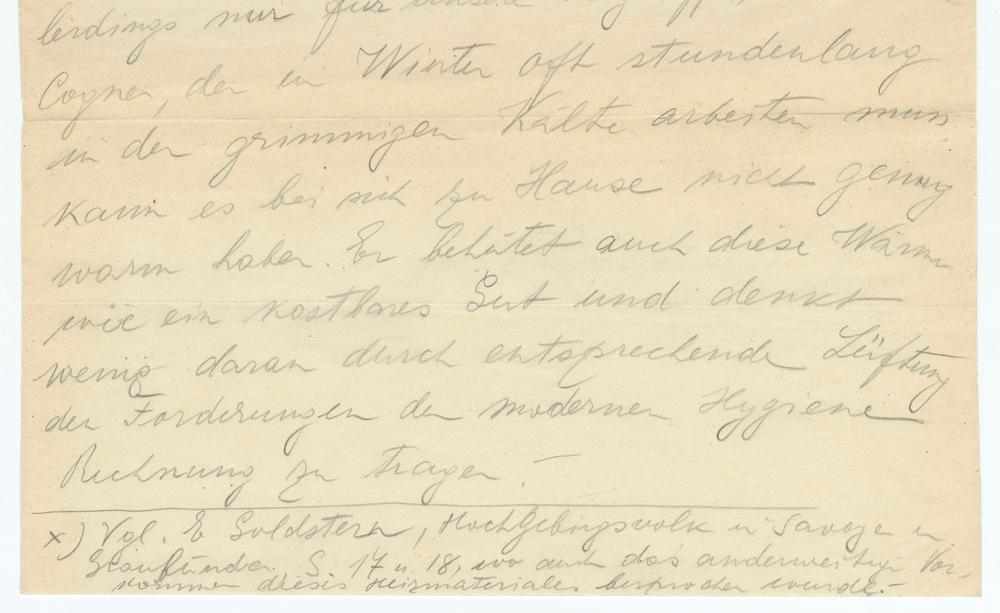 lerdings nur für unsere
Cogner, der im Winter oft stundenlang
in der grimmigen Kälte arbeiten muss,
kann es bei sich zu Hause nicht genug
warm haben. Er behütet auch diese Wärme
wie ein kostbares Gut und denkt
wenig daran durch entsprechende Lüftung
den Forderungen der modernen Hygiene
Rechnung zu tragen –
x) Vgl. E Goldstern, Hochgebirgsvolk in Savoyen u
Graubünden. S. 17 u. 18, wo auch das anderweitige Vor-
kommen dieses Heizmateriales besprochen wurde. –